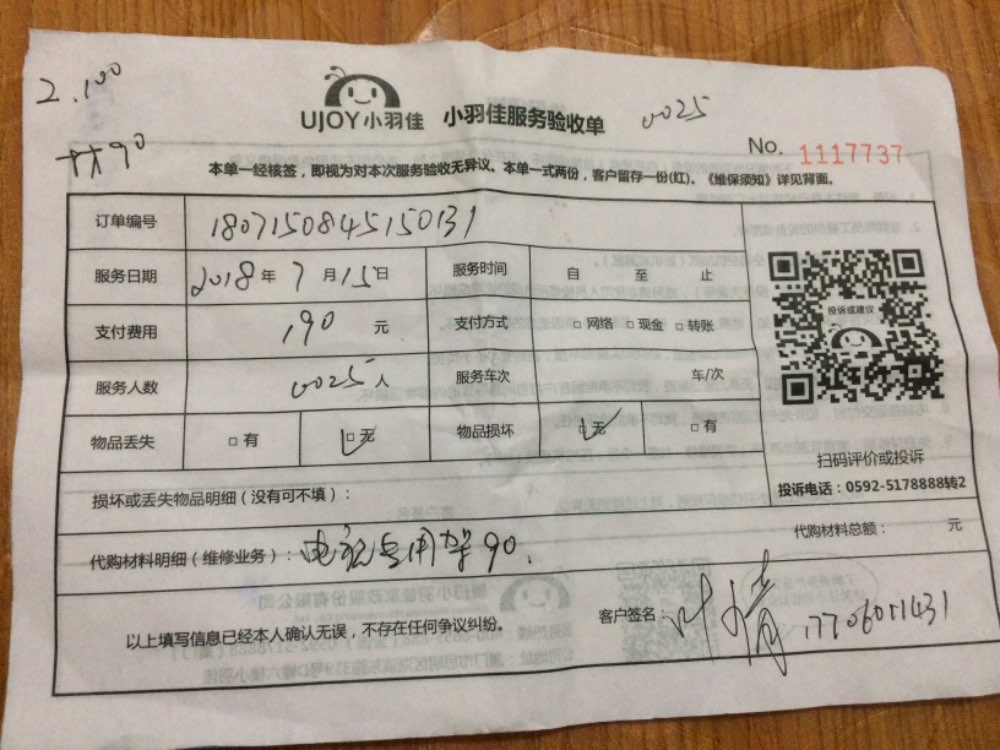 2.100
材90
UJOY小羽佳 小羽佳服务验收单
0025
No. 1117737
本单一经核签，即视为对本次服务验收无异议。本单一式两份，客户留存一份(红)。《维保须知》详见背面。
订单编号 1807150845150131
服务日期 2018年7月15日 服务时间 自 至 止
支付费用 190 元 支付方式 □网络 □现金 □转账
投诉或建议
服务人数 0025人 服务车次 车/次
物品丢失 □有 □无 物品损坏 □无 □有
扫码评价或投诉
投诉电话：0592-5178888转2
损坏或丢失物品明细（没有可不填）：
代购材料明细（维修业务）：电视专用架90. 代购材料总额： 元
以上填写信息已经本人确认无误，不存在任何争议纠纷。 客户签名： 17706011431